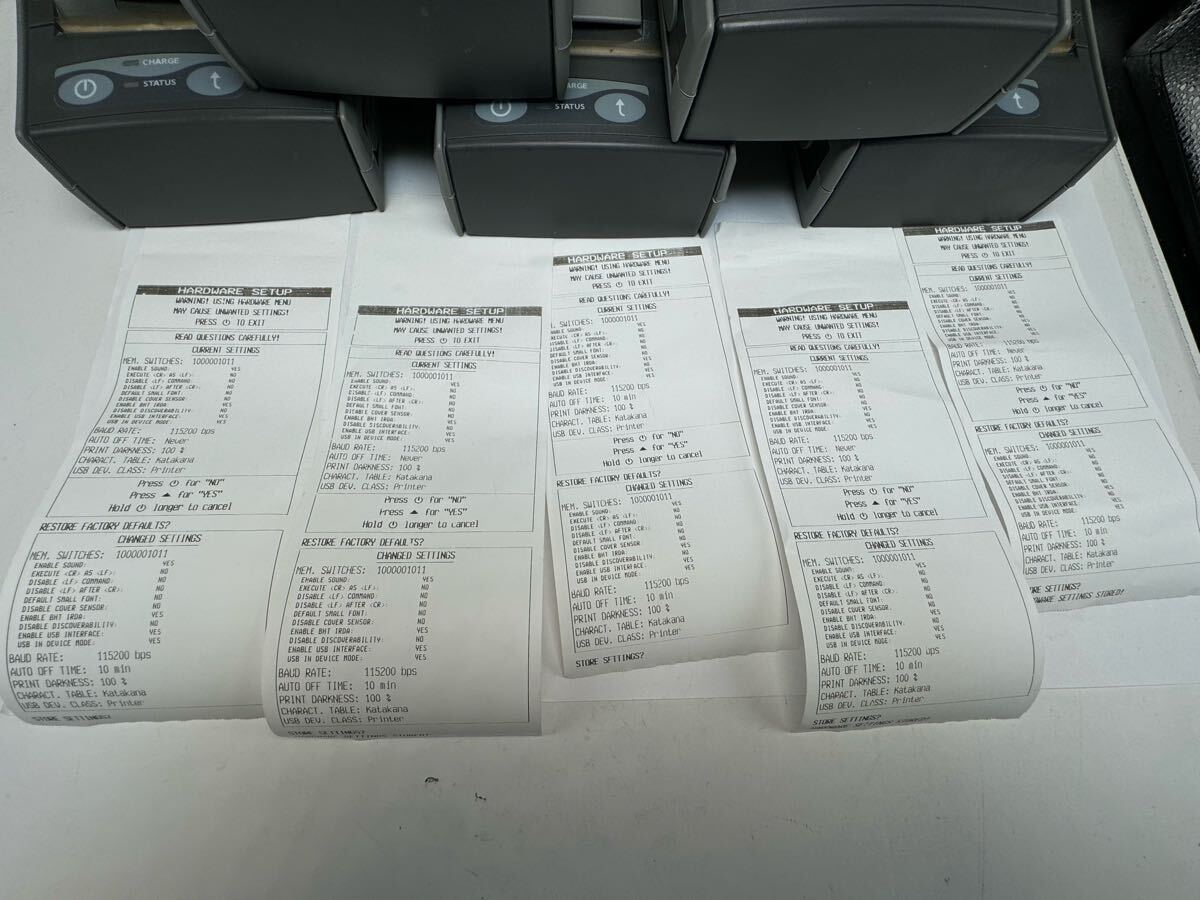 CHARGE
STATUS
ARGE
STATUS
HARDWARE SETUP
WARNING! USING HARDWARE MENU
MAY CAUSE UNWANTED SETTINGS!
PRESS ⏻ TO EXIT
READ QUESTIONS CAREFULLY!
CURRENT SETTINGS
MEM. SWITCHES: 1000001011
ENABLE SOUND: YES
EXECUTE <CR> AS <LF>: NO
DISABLE <LF> COMMAND: NO
DISABLE <LF> AFTER <CR>: NO
DEFAULT SMALL FONT: NO
DISABLE COVER SENSOR: NO
ENABLE BHT IRDA: YES
DISABLE DISCOVERABILITY: NO
ENABLE USB INTERFACE: YES
USB IN DEVICE MODE: YES
BAUD RATE: 115200 bps
AUTO OFF TIME: Never
PRINT DARKNESS: 100 %
CHARACT. TABLE: Katakana
USB DEV. CLASS: Printer
Press ⏻ for "NO"
Press ▲ for "YES"
Hold ⏻ longer to cancel
RESTORE FACTORY DEFAULTS?
CHANGED SETTINGS
MEM. SWITCHES: 1000001011
ENABLE SOUND: YES
EXECUTE <CR> AS <LF>: NO
DISABLE <LF> COMMAND: NO
DISABLE <LF> AFTER <CR>: NO
DEFAULT SMALL FONT: NO
DISABLE COVER SENSOR: NO
ENABLE BHT IRDA: YES
DISABLE DISCOVERABILITY: NO
ENABLE USB INTERFACE: YES
USB IN DEVICE MODE: YES
BAUD RATE: 115200 bps
AUTO OFF TIME: 10 min
PRINT DARKNESS: 100 %
CHARACT. TABLE: Katakana
USB DEV. CLASS: Printer
STORE SETTINGS?
HARDWARE SETUP
WARNING! USING HARDWARE MENU
MAY CAUSE UNWANTED SETTINGS!
PRESS ⏻ TO EXIT
READ QUESTIONS CAREFULLY!
CURRENT SETTINGS
MEM. SWITCHES: 1000001011
ENABLE SOUND: YES
EXECUTE <CR> AS <LF>: NO
DISABLE <LF> COMMAND: NO
DISABLE <LF> AFTER <CR>: NO
DEFAULT SMALL FONT: NO
DISABLE COVER SENSOR: NO
ENABLE BHT IRDA: YES
DISABLE DISCOVERABILITY: NO
ENABLE USB INTERFACE: YES
USB IN DEVICE MODE: YES
BAUD RATE: 115200 bps
AUTO OFF TIME: Never
PRINT DARKNESS: 100 %
CHARACT. TABLE: Katakana
USB DEV. CLASS: Printer
Press ⏻ for "NO"
Press ▲ for "YES"
Hold ⏻ longer to cancel
RESTORE FACTORY DEFAULTS?
CHANGED SETTINGS
MEM. SWITCHES: 1000001011
ENABLE SOUND: YES
EXECUTE <CR> AS <LF>: NO
DISABLE <LF> COMMAND: NO
DISABLE <LF> AFTER <CR>: NO
DEFAULT SMALL FONT: NO
DISABLE COVER SENSOR: NO
ENABLE BHT IRDA: YES
DISABLE DISCOVERABILITY: NO
ENABLE USB INTERFACE: YES
USB IN DEVICE MODE: YES
BAUD RATE: 115200 bps
AUTO OFF TIME: 10 min
PRINT DARKNESS: 100 %
CHARACT. TABLE: Katakana
USB DEV. CLASS: Printer
STORE SETTINGS?
HARDWARE SETTINGS STORED!
HARDWARE SETUP
WARNING! USING HARDWARE MENU
MAY CAUSE UNWANTED SETTINGS!
PRESS ⏻ TO EXIT
READ QUESTIONS CAREFULLY!
CURRENT SETTINGS
. SWITCHES: 1000001011
ENABLE SOUND: YES
EXECUTE <CR> AS <LF>: NO
DISABLE <LF> COMMAND: NO
DISABLE <LF> AFTER <CR>: NO
DEFAULT SMALL FONT: NO
DISABLE COVER SENSOR: NO
ENABLE BHT IRDA: YES
DISABLE DISCOVERABILITY: NO
ENABLE USB INTERFACE: YES
USB IN DEVICE MODE: YES
BAUD RATE: 115200 bps
AUTO OFF TIME: 10 min
PRINT DARKNESS: 100 %
CHARACT. TABLE: Katakana
USB DEV. CLASS: Printer
Press ⏻ for "NO"
Press ▲ for "YES"
Hold ⏻ longer to cancel
RESTORE FACTORY DEFAULTS?
CHANGED SETTINGS
MEM. SWITCHES: 1000001011
ENABLE SOUND: YES
EXECUTE <CR> AS <LF>: NO
DISABLE <LF> COMMAND: NO
DISABLE <LF> AFTER <CR>: NO
DEFAULT SMALL FONT: NO
DISABLE COVER SENSOR: NO
ENABLE BHT IRDA: YES
DISABLE DISCOVERABILITY: NO
ENABLE USB INTERFACE: YES
USB IN DEVICE MODE: YES
BAUD RATE: 115200 bps
AUTO OFF TIME: 10 min
PRINT DARKNESS: 100 %
CHARACT. TABLE: Katakana
USB DEV. CLASS: Printer
STORE SETTINGS?
HARDWARE SETUP
WARNING! USING HARDWARE MENU
MAY CAUSE UNWANTED SETTINGS!
PRESS ⏻ TO EXIT
READ QUESTIONS CAREFULLY!
CURRENT SETTINGS
MEM. SWITCHES: 1000001011
ENABLE SOUND: YES
EXECUTE <CR> AS <LF>: NO
DISABLE <LF> COMMAND: NO
DISABLE <LF> AFTER <CR>: NO
DEFAULT SMALL FONT: NO
DISABLE COVER SENSOR: NO
ENABLE BHT IRDA: YES
DISABLE DISCOVERABILITY: NO
ENABLE USB INTERFACE: YES
USB IN DEVICE MODE: YES
BAUD RATE: 115200 bps
AUTO OFF TIME: Never
PRINT DARKNESS: 100 %
CHARACT. TABLE: Katakana
USB DEV. CLASS: Printer
Press ⏻ for "NO"
Press ▲ for "YES"
Hold ⏻ longer to cancel
RESTORE FACTORY DEFAULTS?
CHANGED SETTINGS
MEM. SWITCHES: 1000001011
ENABLE SOUND: YES
EXECUTE <CR> AS <LF>: NO
DISABLE <LF> COMMAND: NO
DISABLE <LF> AFTER <CR>: NO
DEFAULT SMALL FONT: NO
DISABLE COVER SENSOR: NO
ENABLE BHT IRDA: YES
DISABLE DISCOVERABILITY: NO
ENABLE USB INTERFACE: YES
USB IN DEVICE MODE: YES
BAUD RATE: 115200 bps
AUTO OFF TIME: 10 min
PRINT DARKNESS: 100 %
CHARACT. TABLE: Katakana
USB DEV. CLASS: Printer
STORE SETTINGS?
HARDWARE SETTINGS STORED!
HARDWARE SETUP
WARNING! USING HARDWARE MENU
MAY CAUSE UNWANTED SETTINGS!
PRESS ⏻ TO EXIT
READ QUESTIONS CAREFULLY!
CURRENT SETTINGS
MEM. SWITCHES: 1000001011
ENABLE SOUND: YES
EXECUTE <CR> AS <LF>: NO
DISABLE <LF> COMMAND: NO
DISABLE <LF> AFTER <CR>: NO
DEFAULT SMALL FONT: NO
DISABLE COVER SENSOR: NO
ENABLE BHT IRDA: YES
DISABLE DISCOVERABILITY: NO
ENABLE USB INTERFACE: YES
USB IN DEVICE MODE: YES
BAUD RATE: 115200 bps
AUTO OFF TIME: Never
PRINT DARKNESS: 100 %
CHARACT. TABLE: Katakana
USB DEV. CLASS: Printer
Press ⏻ for "NO"
Press ▲ for "YES"
Hold ⏻ longer to cancel
RESTORE FACTORY DEFAULTS?
CHANGED SETTINGS
MEM. SWITCHES: 1000001011
ENABLE SOUND: YES
EXECUTE <CR> AS <LF>: NO
DISABLE <LF> COMMAND: NO
DISABLE <LF> AFTER <CR>: NO
DEFAULT SMALL FONT: NO
DISABLE COVER SENSOR: NO
ENABLE BHT IRDA: YES
DISABLE DISCOVERABILITY: NO
ENABLE USB INTERFACE: YES
USB IN DEVICE MODE: YES
BAUD RATE: 115200 bps
AUTO OFF TIME: 10 min
PRINT DARKNESS: 100 %
CHARACT. TABLE: Katakana
USB DEV. CLASS: Printer
RE SETTINGS?
WARE SETTINGS STORED!